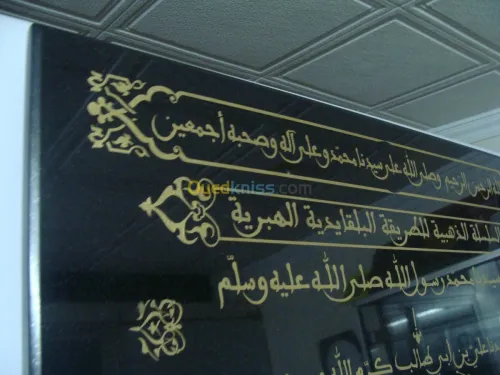 الرحمن الرحيم وصلى الله على سيدنا محمد وعلى آله وصحبه أجمعين
Ouedkniss.com
السلسلة الذهبية للطريقة البلقايدية الهبرية
سيدنا محمد رسول الله صلى الله عليه وسلّم
علي بن أبي طالب كرم الله